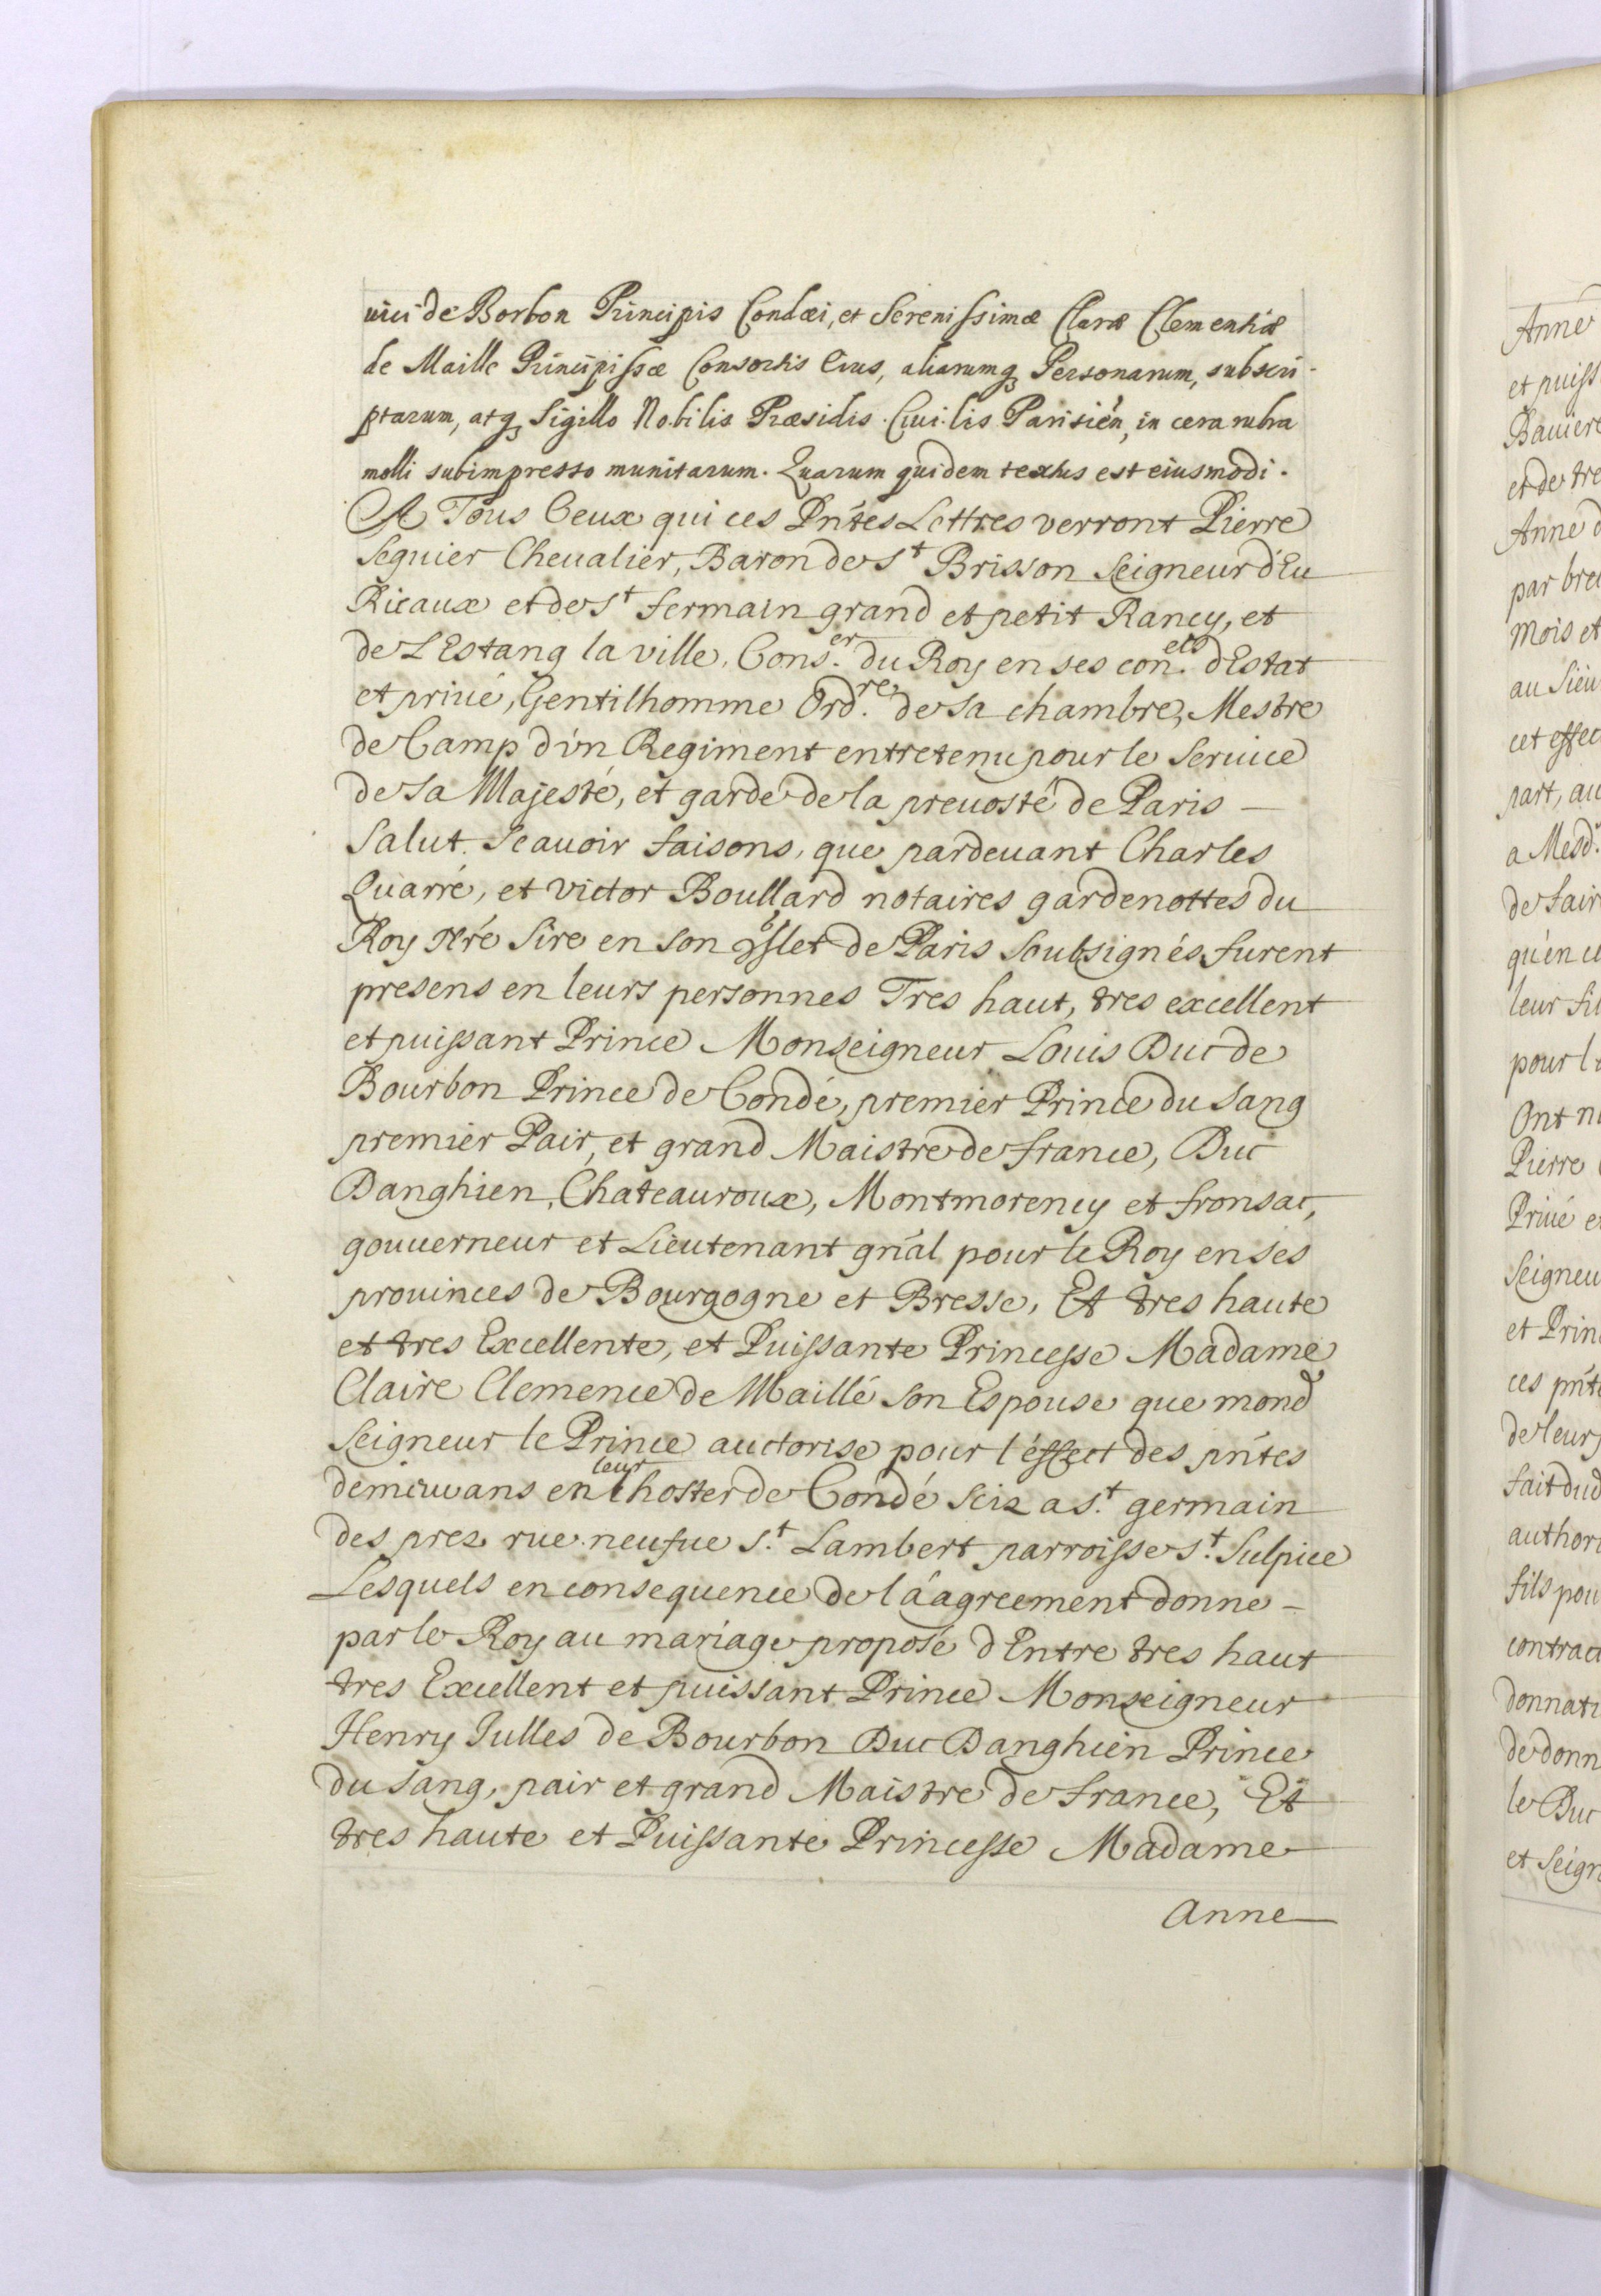 uici de Borbon Principis Condæi, et Serenissimæ Claræ Clementiæ
de Maille Principissæ Consortis Eius, aliarumq3 Personarum, subscri-
ptarum, atq3 Sigillo Nobilis Præsidis Ciuilis Parisień, in cera rubra
molli subimpresso munitarum. Quarum quidem textus est eiusmodi.
A Tous Ceux qui ces Pńtes Lettres verront Pierre
Seguier Cheualier, Baron de St Brisson Seigneur d'Eu
Ricaux et de St fermain grand et petit Rancy, et
de L'Estang la ville, Cons.er du Roy en ses con.els d'Estat
et priué, Gentilhomme Ord.re de Sa chambre, Mestre
de Camp d'vn Regiment entretenu pour le Seruice
de Sa Majesté, et garde de la preuosté de Paris —
Salut. Scauoir faisons, que pardeuant Charles
Quarré, et victor Boullard notaires gardenottes du
Roy nŕe Sire en son de Paris Soubsignés furent
presens en leurs personnes Tres haut, tres excellent
et puissant Prince Monseigneur Louis Duc de
Bourbon Prince de Condé, premier Prince du Sang
premier Pair, et grand Maistre de france, Duc
Danghien, Chateauroux, Montmorency et fronsac,
gouuerneur et Lieutenant gńal pour le Roy en ses
prouinces de Bourgogne et Bresse, Et tres haute
et tres Excellente, et Puissante Princesse Madame
Claire Clemence de Maillé Son Espouse que mond
Seigneur le Prince auctorise pour l'effect des pńtes
en leur hostel de Condé Sciz a S.t germain
des prez rue neufue S.t Lambert parroisse S.t Sulpice
Lesquels en consequence de l'aagreement donne —
par le Roy au mariage proposé d'Entre tres haut
tres Excellent et puissant Prince Monseigneur
Henry Julles de Bourbon Duc Danghien Prince
du Sang, pair et grand Maistre de france, Et
tres haute et Puissante Princesse Madame
Anne
Anne
et puiss
Bauiere
et de tre
Anne d
par breu
mois et
au Sieu
cet effec
part, au
a Mesd.
de fair
qu'en ce
leur fil
pour l
Ont n
Pierre
Priué e
Seigneu
et Prin
ces pńt
de leur
fait dud
authori
fils pou
contrac
donnati
de donn
le Duc
et Seign